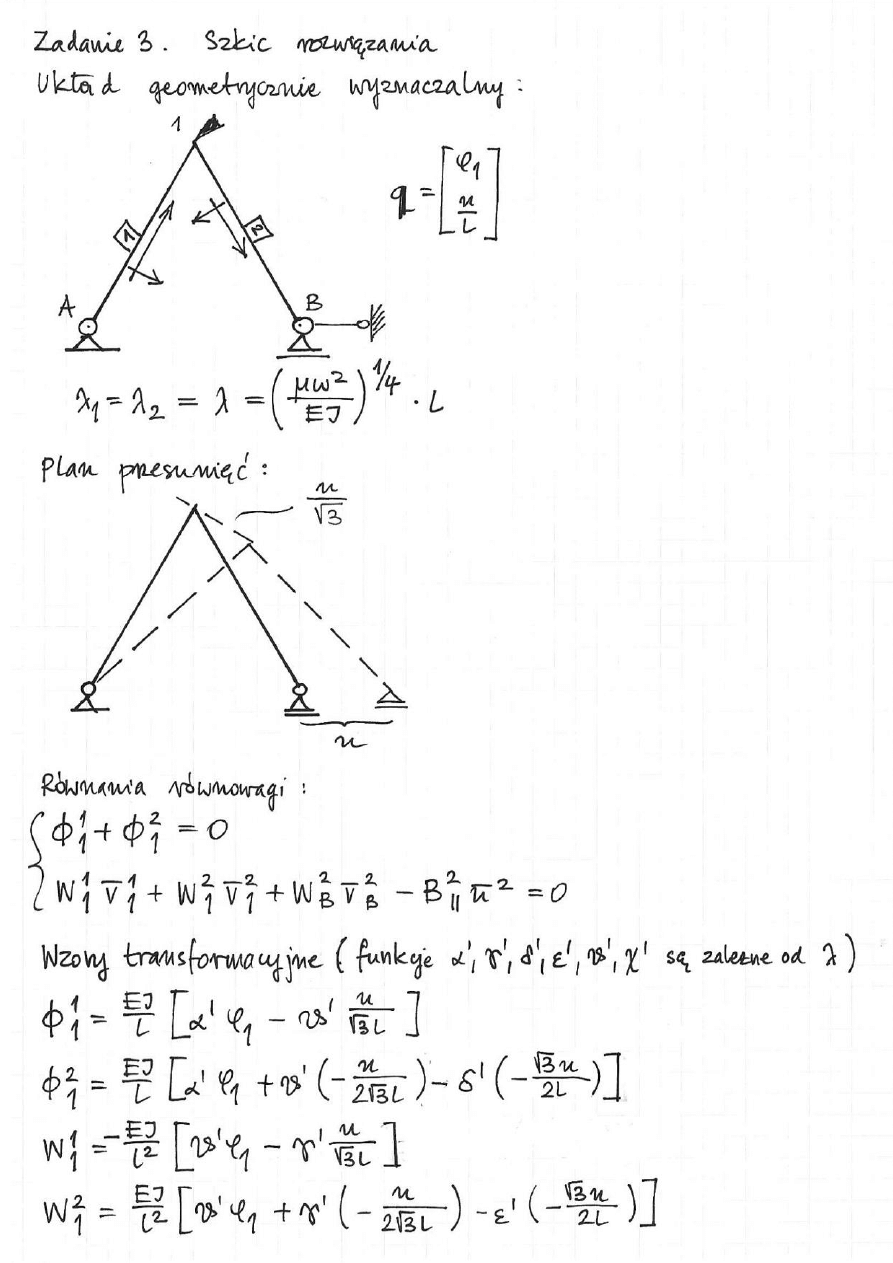 Zadanie 3. Szkic rozwiązania
Układ geometrycznie wyznaczalny:
1
q = [φ₁ u/L]
1
2
A
B
λ₁ = λ₂ = λ = (μω²/EJ)^(1/4) · L
Plan przesunięć:
u/√3
u
Równania równowagi:
Φ₁¹ + Φ₁² = 0
W₁¹ v̄₁¹ + W₁² v̄₁² + W_B² v̄_B² − B_∥² ū² = 0
Wzory transformacyjne (funkcje α', γ', δ', ε', ϑ', χ' są zależne od λ)
Φ₁¹ = EJ/L [α' φ₁ − ϑ' u/(√3L)]
Φ₁² = EJ/L [α' φ₁ + ϑ' (−u/(2√3L)) − δ' (−√3u/(2L))]
W₁¹ = −EJ/L² [ϑ'φ₁ − γ' u/(√3L)]
W₁² = EJ/L² [ϑ'φ₁ + γ' (−u/(2√3L)) − ε' (−√3u/(2L))]